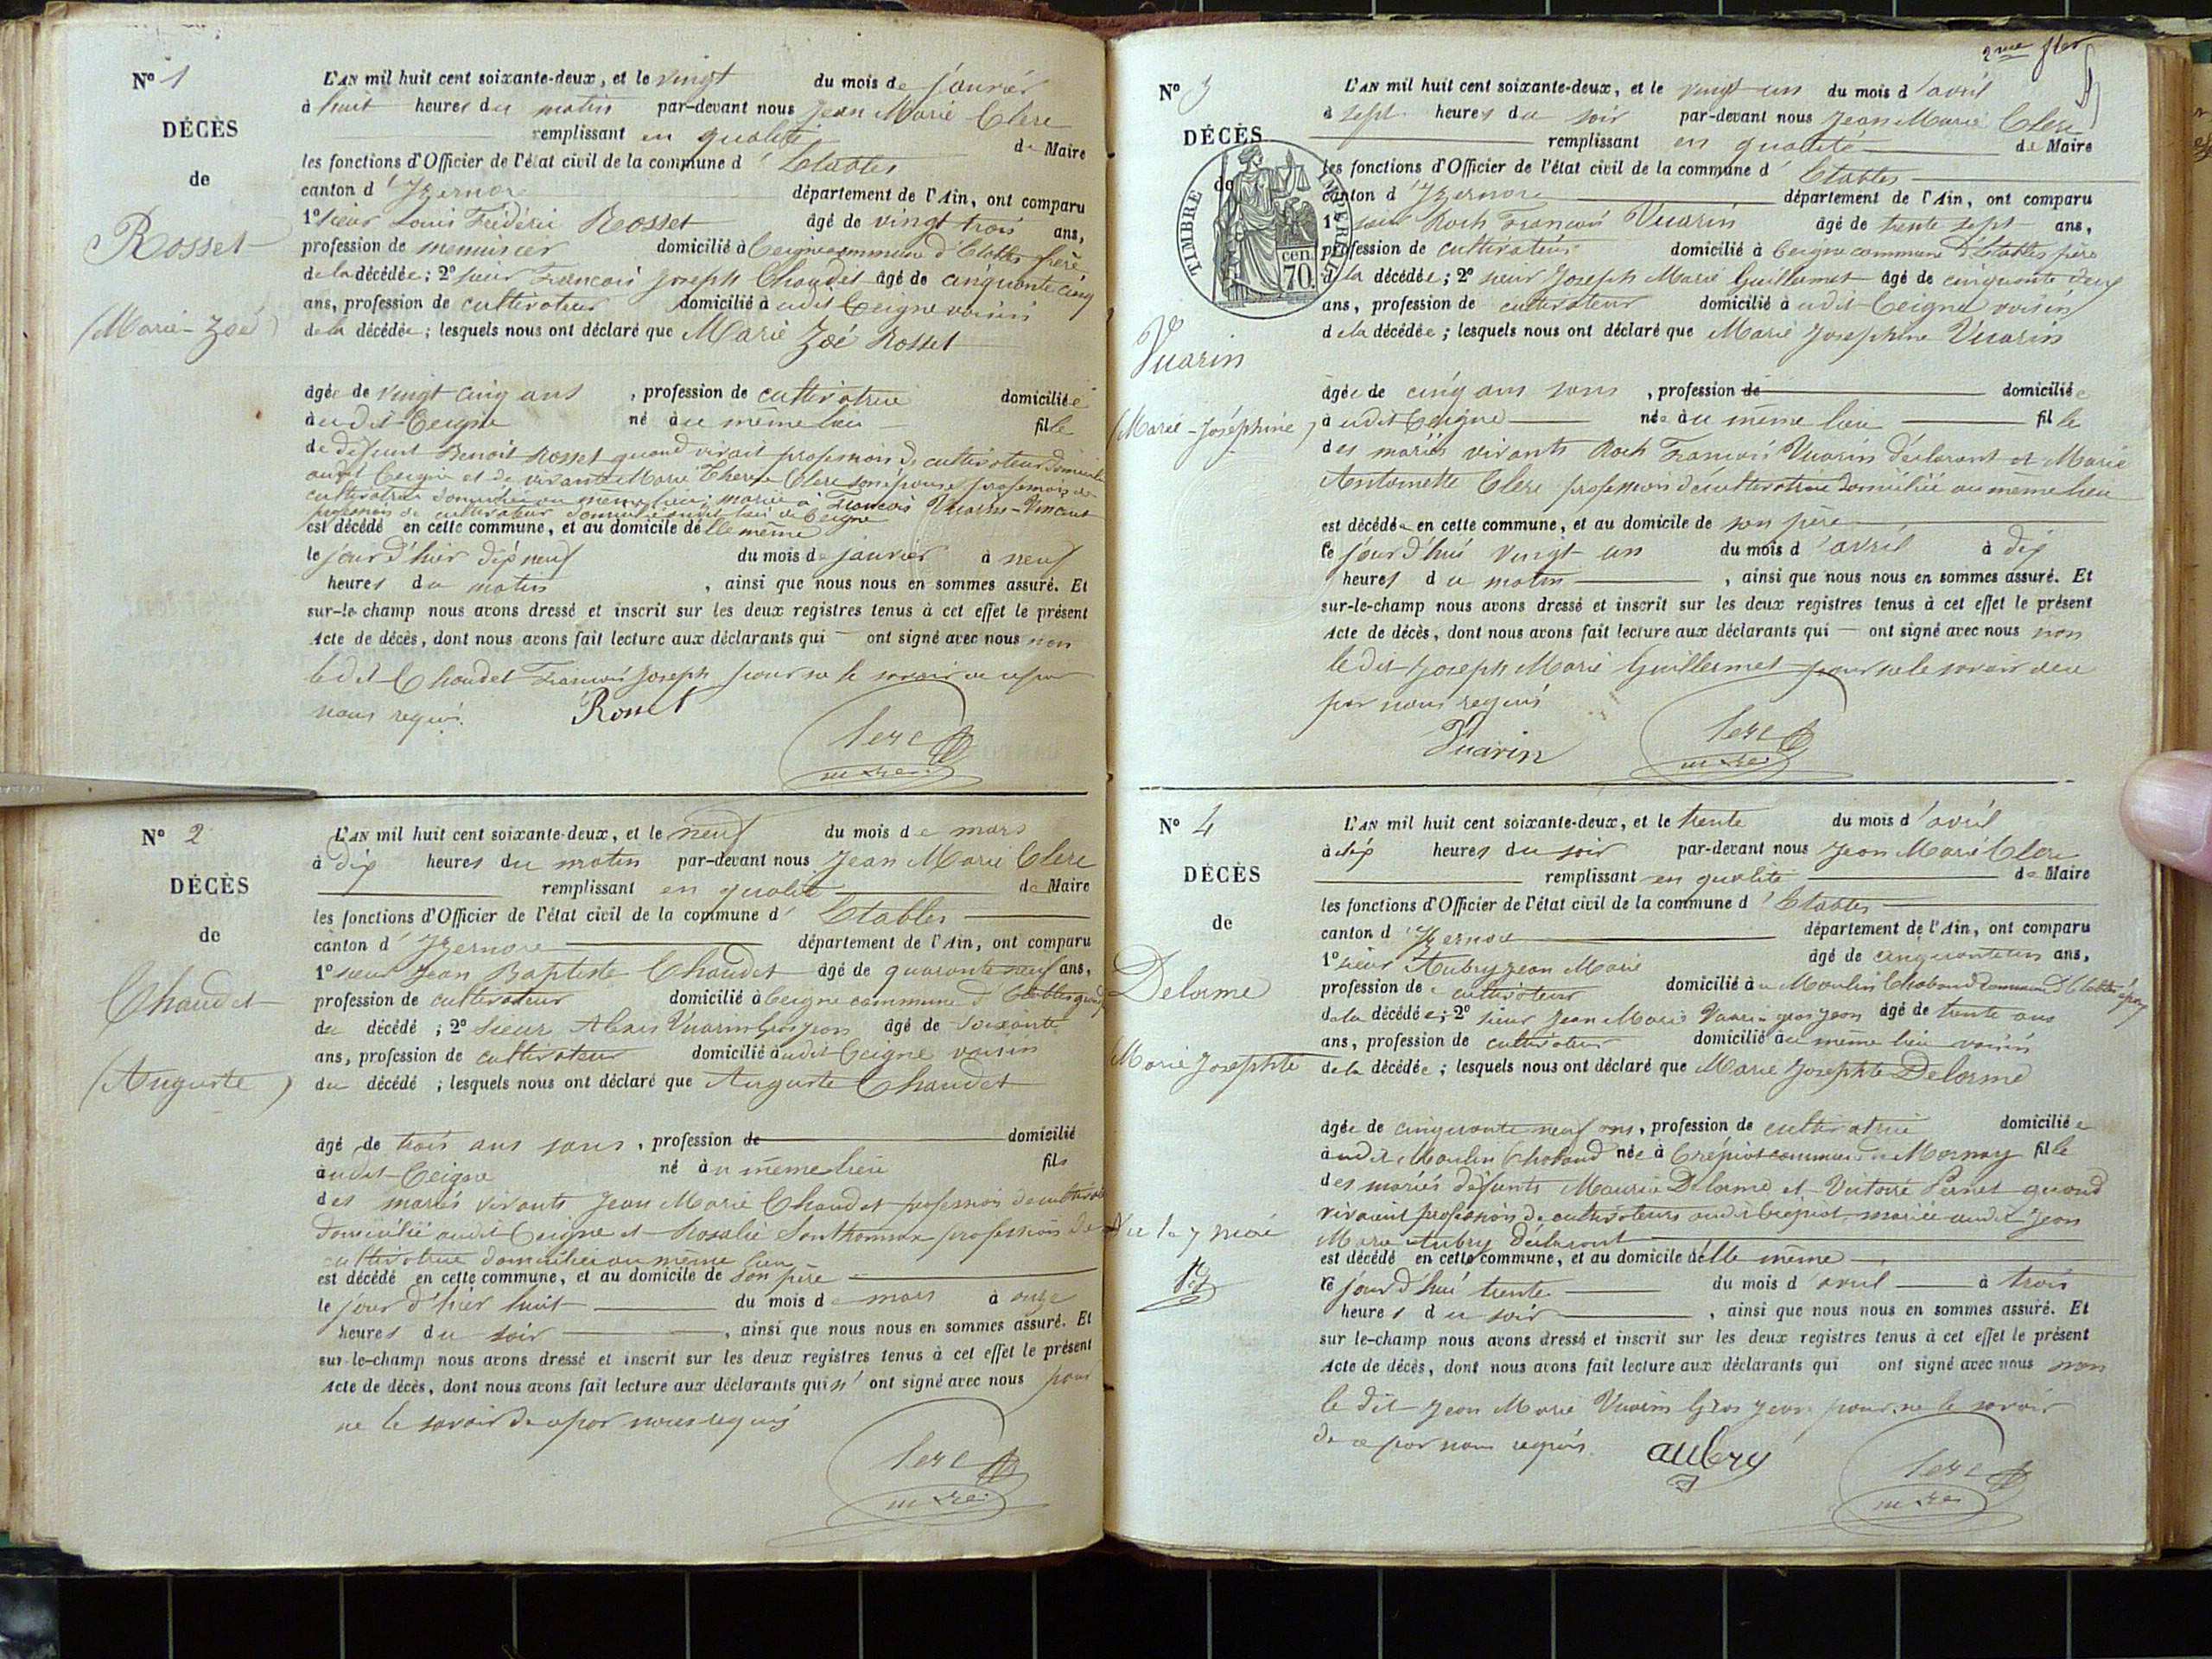 N° 1
DÉCÈS
de
Rosset
(Marie-Zoé)
L'AN mil huit cent soixante-deux, et le vingt du mois de janvier
à huit heures du matin par-devant nous Jean Marie Clerc
remplissant en qualité de Maire
les fonctions d'Officier de l'état civil de la commune d'Etables
canton d'Izernore département de l'Ain, ont comparu
1° sieur Louis Frédéric Rosset âgé de vingt trois ans,
profession de menuisier domicilié à Ceignes commune d'Etables frère
de la décédée; 2° sieur François Joseph Chaudet âgé de cinquante cinq
ans, profession de cultivateur domicilié à udit Ceigne voisin
de la décédée; lesquels nous ont déclaré que Marie Zoé Rosset
âgée de vingt cinq ans, profession de cultivatrice domiciliée
à udit Ceigne né àu même lieu fille
de défunt Benoit Rosset quand vivait profession de cultivateur domicilié
audit Ceigne et de vivante Marie Therese Clerc son épouse profession de
cultivatrice domiciliée au même lieu; mariée à François Vuarin-Vincent
profession de cultivateur domicilié audit lieu de Ceigne
est décédé en cette commune, et au domicile d'elle même
le jour d'hier dix neuf du mois de janvier à neuf
heures du matin, ainsi que nous nous en sommes assuré. Et
sur-le-champ nous avons dressé et inscrit sur les deux registres tenus à cet effet le présent
Acte de décès, dont nous avons fait lecture aux déclarants qui ont signé avec nous non
ledit Chaudet François Joseph pour ne le savoir de ce par
nous requis. Rosset
Clerc
maire
N° 2
DÉCÈS
de
Chaudet
(Auguste)
L'AN mil huit cent soixante-deux, et le neuf du mois de mars
à dix heures du matin par-devant nous Jean Marie Clerc
remplissant en qualité de Maire
les fonctions d'Officier de l'état civil de la commune d'Etables
canton d'Izernore département de l'Ain, ont comparu
1° sieur Jean Baptiste Chaudet âgé de quarante neuf ans,
profession de cultivateur domicilié à Ceigne commune d'Etables
du décédé; 2° sieur Alexis Vuarin Gros jean âgé de soixante
ans, profession de cultivateur domicilié àudit Ceigne voisin
du décédé; lesquels nous ont déclaré que Auguste Chaudet
âgé de trois ans sans, profession de domicilié
àudit Ceigne né àu même lieu fils
des mariés vivants Jean Marie Chaudet profession de
domicilié audit Ceigne et Rosalie Sonthonnax profession de
cultivatrice domiciliée au même lieu
est décédé en cette commune, et au domicile de son père
le jour d'hier huit du mois de mars à onze
heures du soir, ainsi que nous nous en sommes assuré. Et
sur-le-champ nous avons dressé et inscrit sur les deux registres tenus à cet effet le présent
Acte de décès, dont nous avons fait lecture aux déclarants qui n'ont signé avec nous pour
ne le savoir de ce par nous requis
Clerc
maire
2me
N° 3
DÉCÈS
de
TIMBRE IMPERIAL
cen.
70.
Vuarin
(Marie-Joséphine)
L'AN mil huit cent soixante-deux, et le vingt un du mois d'avril
à sept heures du soir par-devant nous Jean Marie Clerc
remplissant en qualité de Maire
les fonctions d'Officier de l'état civil de la commune d'Etables
canton d'Izernore département de l'Ain, ont comparu
1° sieur Roch François Vuarin âgé de trente sept ans,
profession de cultivateur domicilié à Ceigne commune d'Etables père
de la décédée; 2° sieur Joseph Marie Guillermet âgé de cinquante deux
ans, profession de cultivateur domicilié à udit Ceigne voisin
de la décédée; lesquels nous ont déclaré que Marie Josephine Vuarin
âgée de cinq ans sans, profession de domiciliée
à udit Ceigne née àu même lieu fille
des mariés vivants Roch François Vuarin déclarant et Marie
Antoinette Clerc profession de cultivatrice domiciliée au même lieu
est décédée en cette commune, et au domicile de son père
ce jour d'hui vingt un du mois d'avril à dix
heures du matin, ainsi que nous nous en sommes assuré. Et
sur-le-champ nous avons dressé et inscrit sur les deux registres tenus à cet effet le présent
Acte de décès, dont nous avons fait lecture aux déclarants qui ont signé avec nous non
le dit Joseph Marie Guillermet pour ne le savoir de ce
par nous requis
Vuarin Clerc
maire
N° 4
DÉCÈS
de
Delorme
Marie Josephte
Vu le 7 mai
L'AN mil huit cent soixante-deux, et le trente du mois d'avril
à six heures du soir par-devant nous Jean Marie Clerc
remplissant en qualité de Maire
les fonctions d'Officier de l'état civil de la commune d'Etables
canton d'Izernore département de l'Ain, ont comparu
1° sieur Aubry Jean Marie âgé de cinquante un ans,
profession de cultivateur domicilié àu Moulin Chabaud commune d'Etables époux
de la décédée; 2° sieur Jean Marie Vuarin gros Jean âgé de trente ans
ans, profession de cultivateur domicilié àu même lieu voisin
de la décédée; lesquels nous ont déclaré que Marie Josephte Delorme
âgée de cinquante neuf ans, profession de cultivatrice domiciliée
àudit Moulin Chabaud née à Crépiat commune de Mornay fille
des mariés défunts Maurice Delorme et Victoire Pernet quand
vivaient profession de cultivateurs audit Crepiat, mariée audit Jean
Marie Aubry déclarant
est décédé en cette commune, et au domicile d'elle même
ce jour d'hui trente du mois d'avril à trois
heures du soir, ainsi que nous nous en sommes assuré. Et
sur le-champ nous avons dressé et inscrit sur les deux registres tenus à cet effet le présent
Acte de décès, dont nous avons fait lecture aux déclarants qui ont signé avec nous non
le dit Jean Marie Vuarin Gros Jean pour ne le savoir
de ce par nous requis. aubry
Clerc
maire